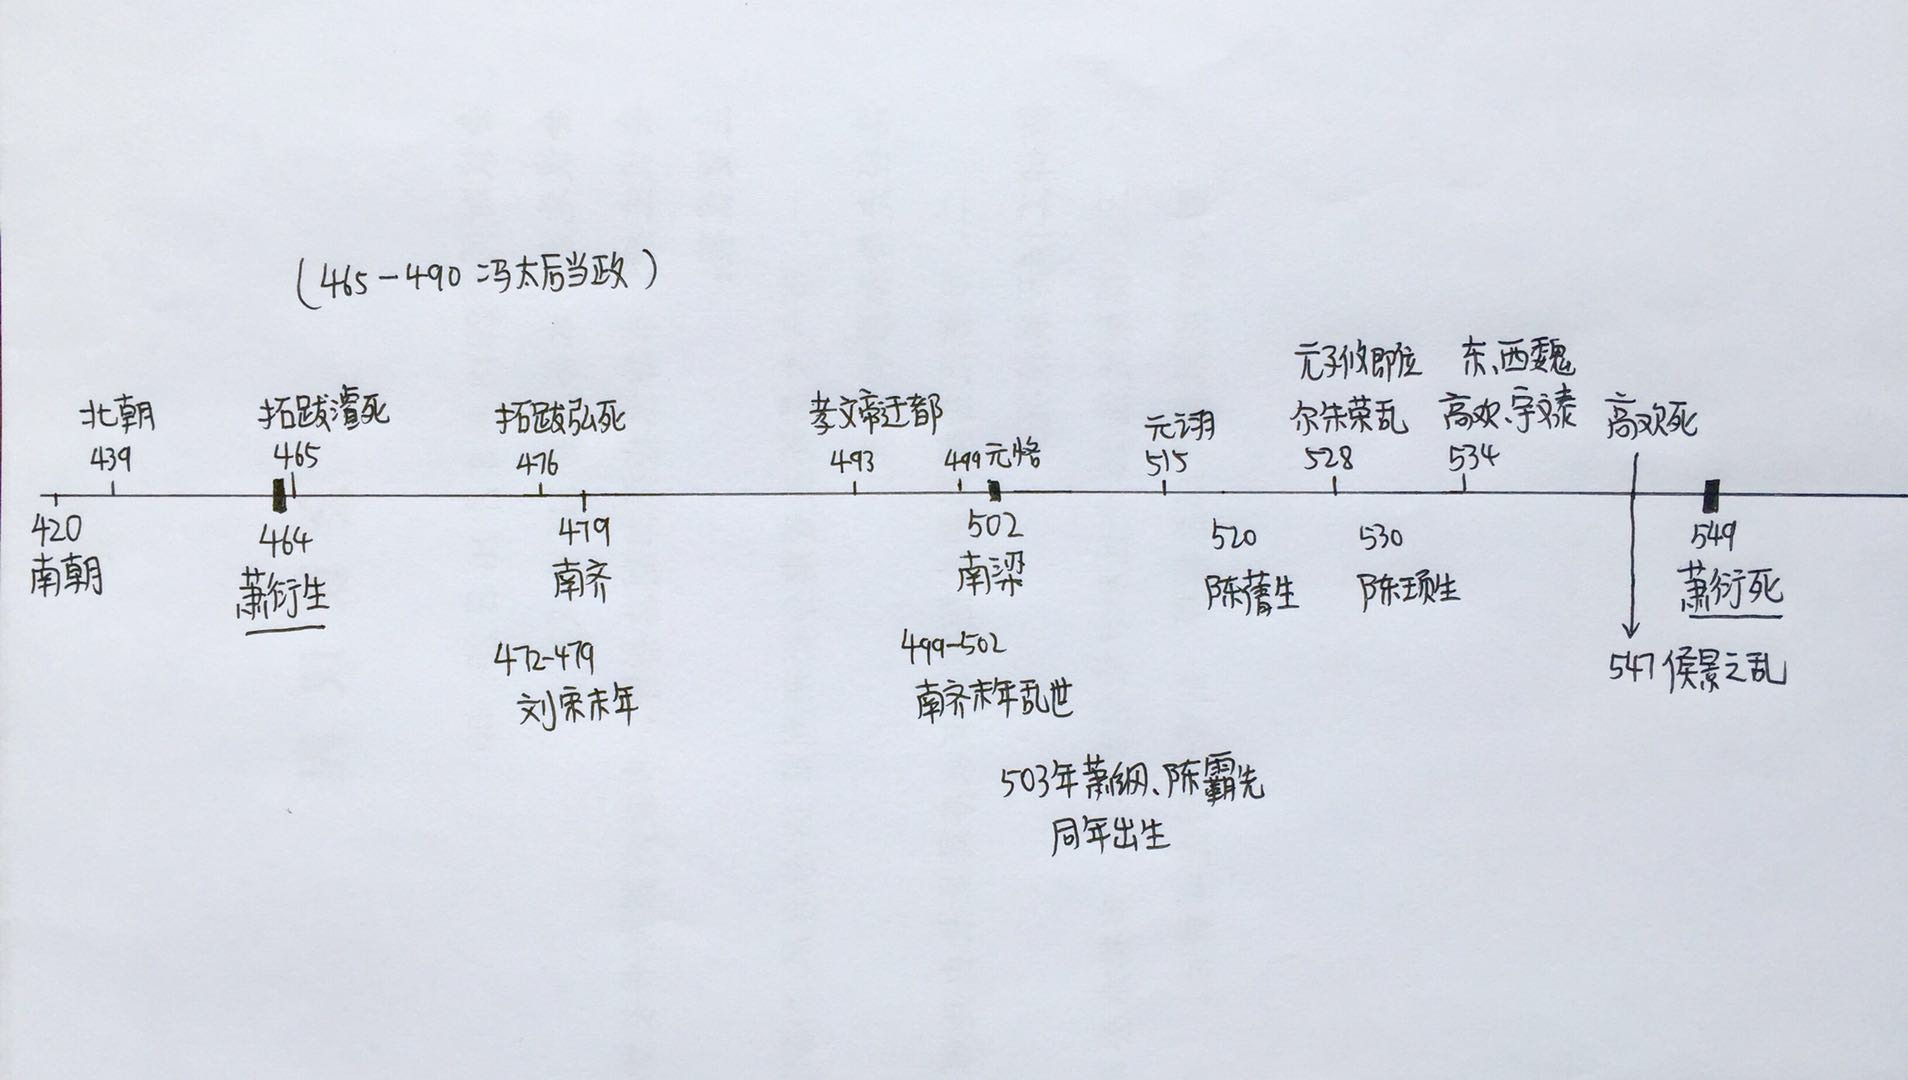 (465-490 冯太后当政)
北朝
439
拓跋濬死
465
拓跋弘死
476
孝文帝迁都
493
499元恪
元诩
515
元子攸即位
尔朱荣乱
528
东、西魏
高欢、宇文泰
534
高欢死
420
南朝
464
萧衍生
479
南齐
472-479
刘宋末年
502
南梁
499-502
南齐末年乱世
503年萧纲、陈霸先
同年出生
520
陈蒨生
530
陈顼生
547侯景之乱
549
萧衍死